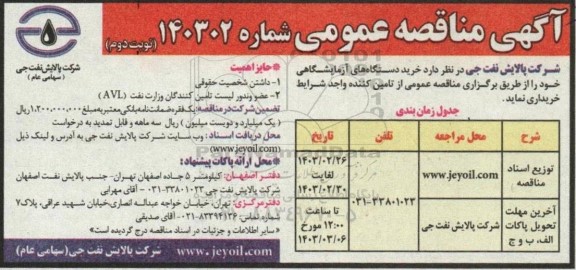 آگهی مناقصه عمومی شماره ۱۴۰۳۰۲ (نوبت دوم)
شرکت پالایش نفت جی
(سهامی عام)
شرکت پالایش نفت جی در نظر دارد خرید دستگاه‌های آزمایشگاهی
خود را از طریق برگزاری مناقصه عمومی از تامین کننده واجد شرایط
خریداری نماید.
جدول زمان بندی
شرح محل مراجعه تلفن تاریخ
توزیع اسناد مناقصه www.jeyoil.com ۰۳۱-۳۳۸۰۱۰۲۳ ۱۴۰۳/۰۲/۲۶ لغایت ۱۴۰۳/۰۲/۳۰
آخرین مهلت تحویل پاکات الف، ب و ج شرکت پالایش نفت جی تا ساعت ۱۲:۰۰ مورخ ۱۴۰۳/۰۳/۰۶
*حایز اهمیت
۱- داشتن شخصیت حقوقی
۲- عضو وندور لیست تامین کنندگان وزارت نفت (AVL)
تضمین شرکت در مناقصه: یک فقره ضمانت نامه بانکی معتبر به مبلغ ۱،۲۰۰،۰۰۰،۰۰۰ ریال
( یک میلیارد و دویست میلیون ) ریال سه ماهه و قابل تمدید به درخواست
محل دریافت اسناد: وب سایت شرکت پالایش نفت جی به آدرس و لینک ذیل
(www.jeyoil.com)
*محل ارائه پاکات پیشنهاد:
دفتر اصفهان: کیلومتر ۵ جاده اصفهان تهران- جنب پالایش نفت اصفهان
شرکت پالایش نفت جی ۳۳۸۰۱۰۲۳-۰۳۱ - آقای مهرابی
دفتر مرکزی: تهران، خیابان خواجه عبداله انصاری، خیابان شهید عراقی، پلاک۷
شماره تماس: ۸۳۳۹۴۱۳۶-۰۲۱ - آقای صدیقی
*سایر اطلاعات و جزئیات در اسناد مناقصه درج گردیده است*
www.jeyoil.com شرکت پالایش نفت جی(سهامی عام)